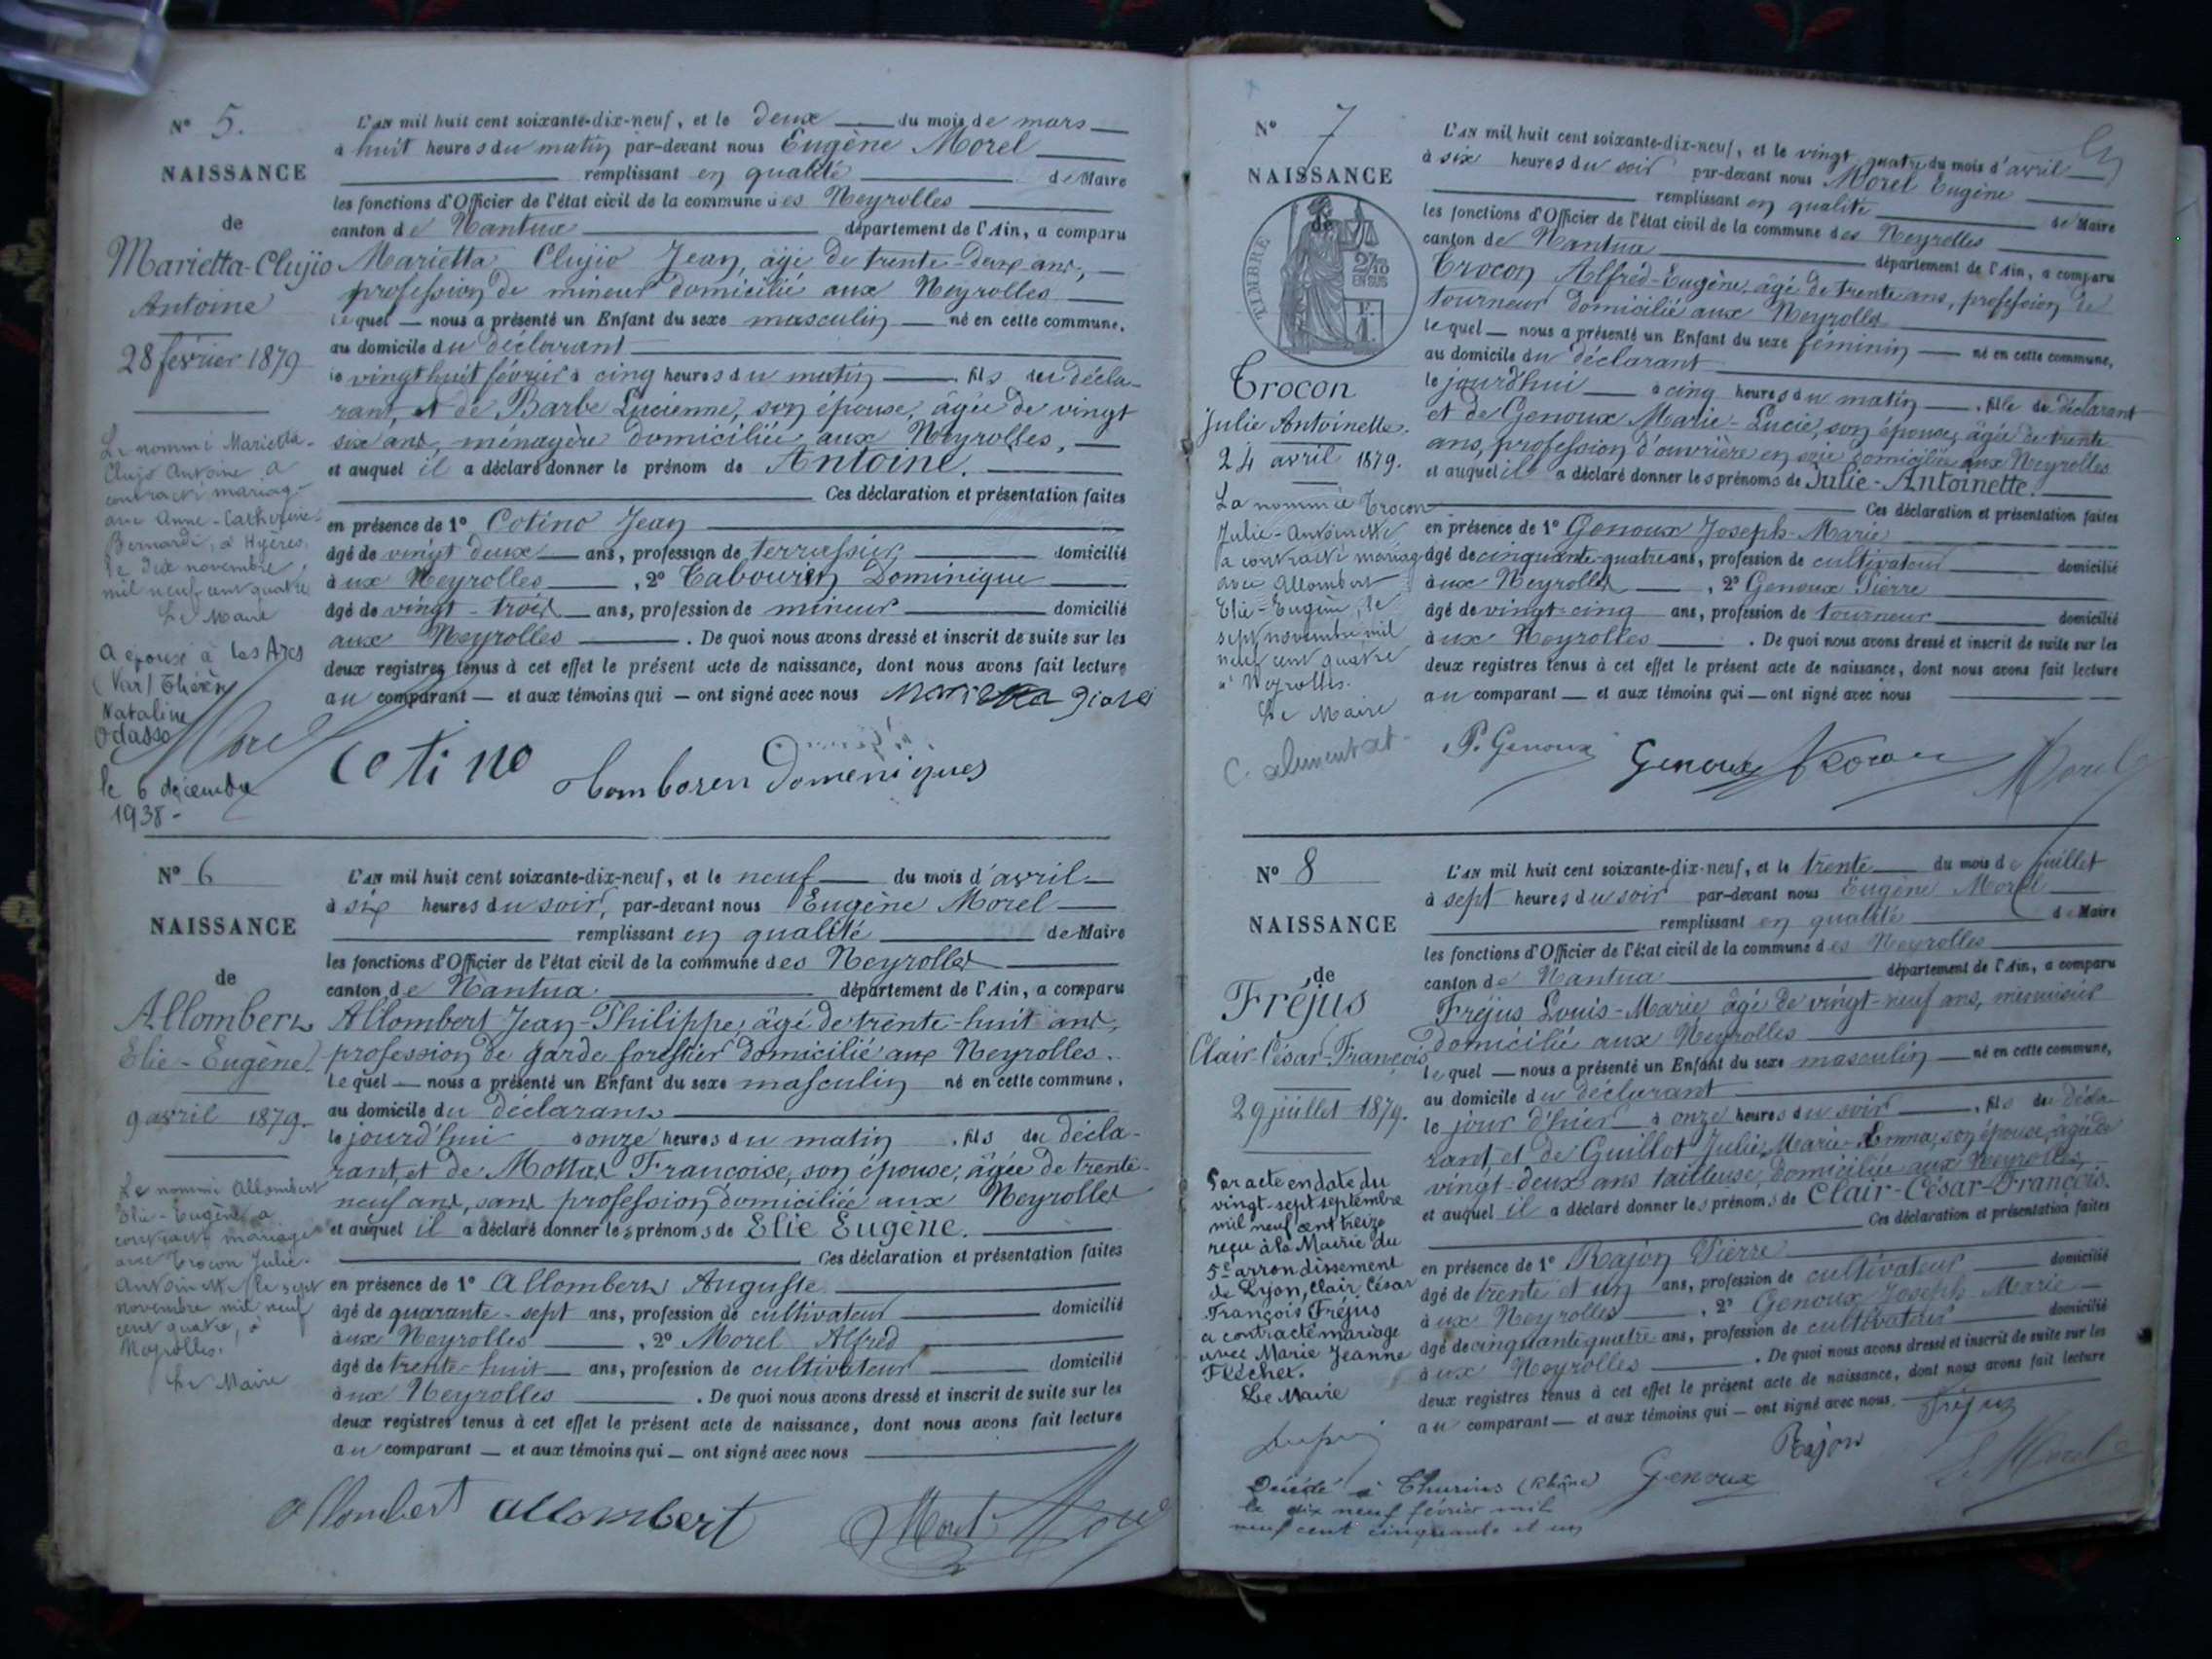 N° 5.
NAISSANCE
de
Marietta-Clujio
Antoine
28 février 1879
Le nommé Marietta-
Clujo Antoine a
contracté mariage
avec Anne-Catherine
Bernardi, à Hyères,
le dix novembre
mil neuf cent quatre
Le Maire
a épousé à Les Arcs
(Var)
Nataline
Odasso
le 6 décembre
1938-
L'AN mil huit cent soixante-dix-neuf, et le deux du mois de mars
à huit heures du matin par-devant nous Eugène Morel
remplissant en qualité de Maire
les fonctions d'Officier de l'état civil de la commune des Neyrolles
canton de Nantua département de l'Ain, a comparu
Marietta Clujio Jean, âgé de trente-deux ans,
profession de mineur domicilié aux Neyrolles
lequel — nous a présenté un Enfant du sexe masculin — né en cette commune,
au domicile du déclarant
le vingt huit février à cinq heures du matin, fils du décla-
rant, et de Barbe Lucienne, son épouse, âgée de vingt
six ans, ménagère domiciliée aux Neyrolles,
et auquel il a déclaré donner le prénom de Antoine.
Ces déclaration et présentation faites
en présence de 1° Cotino Jean
âgé de vingt deux ans, profession de terrassier domicilié
aux Neyrolles, 2° Dominique
âgé de vingt-trois ans, profession de mineur domicilié
aux Neyrolles. De quoi nous avons dressé et inscrit de suite sur les
deux registres tenus à cet effet le présent acte de naissance, dont nous avons fait lecture
au comparant — et aux témoins qui — ont signé avec nous
Morel
Cotino
N° 6
NAISSANCE
de
Allombert
Elie-Eugène
9 avril 1879.
Le nommé Allombert
Elie-Eugène a
contracté mariage
avec Trocon Julie-
Antoinette le sept
novembre mil neuf
cent quatre, à
Neyrolles.
Le Maire
L'AN mil huit cent soixante-dix-neuf, et le neuf du mois d'avril
à six heures du soir, par-devant nous Eugène Morel
remplissant en qualité de Maire
les fonctions d'Officier de l'état civil de la commune des Neyrolles
canton de Nantua département de l'Ain, a comparu
Allombert Jean-Philippe, âgé de trente-huit ans,
profession de garde forestier domicilié aux Neyrolles.
lequel — nous a présenté un Enfant du sexe masculin né en cette commune,
au domicile du déclarant
le jourd'hui à onze heures du matin, fils du décla-
rant, et de Mottas Françoise, son épouse, âgée de trente-
neuf ans, sans profession domiciliée aux Neyrolles
et auquel il a déclaré donner les prénoms de Elie Eugène.
Ces déclaration et présentation faites
en présence de 1° Allombert Auguste
âgé de quarante-sept ans, profession de cultivateur domicilié
aux Neyrolles, 2° Morel Alfred
âgé de trente-huit ans, profession de cultivateur domicilié
aux Neyrolles. De quoi nous avons dressé et inscrit de suite sur les
deux registres tenus à cet effet le présent acte de naissance, dont nous avons fait lecture
au comparant — et aux témoins qui — ont signé avec nous
Allombert allombert Morel
N° 7
NAISSANCE
de
TIMBRE
2/10
EN SUS
F.
1.
Trocon
Julie Antoinette.
24 avril 1879.
La nommée Trocon
Julie-Antoinette
a contracté mariage
avec Allombert
Elie-Eugène, le
sept novembre mil
neuf cent quatre
à Neyrolles.
Le Maire
L'AN mil huit cent soixante-dix-neuf, et le vingt quatre du mois d'avril
à six heures du soir par-devant nous Morel Eugène
remplissant en qualité de Maire
les fonctions d'Officier de l'état civil de la commune des Neyrolles
canton de Nantua département de l'Ain, a comparu
Trocon Alfred-Eugène, âgé de trente ans, profession de
tourneur domicilié aux Neyrolles
lequel — nous a présenté un Enfant du sexe féminin — né en cette commune,
au domicile du déclarant
le jourd'hui à cinq heures du matin, fille du déclarant
et de Genoux Marie-Lucie, son épouse, âgée de trente
ans, profession d'ouvrière en soie domiciliée aux Neyrolles
et auquel il a déclaré donner les prénoms de Julie-Antoinette.
Ces déclaration et présentation faites
en présence de 1° Genoux Joseph-Marie
âgé de cinquante-quatre ans, profession de cultivateur domicilié
aux Neyrolles, 2° Genoux Pierre
âgé de vingt-cinq ans, profession de tourneur domicilié
aux Neyrolles. De quoi nous avons dressé et inscrit de suite sur les
deux registres tenus à cet effet le présent acte de naissance, dont nous avons fait lecture
au comparant — et aux témoins qui — ont signé avec nous
P. Genoux Genoux Trocon Morel
N° 8
NAISSANCE
de
Fréjus
Clair-César-François
29 juillet 1879.
Par acte en date du
vingt-sept septembre
mil neuf cent treize
reçu à la Mairie du
5e arrondissement
de Lyon, Clair César
François Fréjus
a contracté mariage
avec Marie Jeanne
Fléchet.
Le Maire
Décédé à Thurins (Rhône)
le dix neuf février mil
neuf cent cinquante et un
L'AN mil huit cent soixante-dix-neuf, et le trente du mois de juillet
à sept heures du soir par-devant nous Eugène Morel
remplissant en qualité de Maire
les fonctions d'Officier de l'état civil de la commune des Neyrolles
canton de Nantua département de l'Ain, a comparu
Fréjus Louis-Marie âgé de vingt-neuf ans, menuisier
domicilié aux Neyrolles
lequel — nous a présenté un Enfant du sexe masculin — né en cette commune,
au domicile du déclarant
le jour d'hier à onze heures du soir, fils du décla-
rant et de Guillot Julie, Marie-Emma, son épouse, âgée de
vingt-deux ans tailleuse, domiciliée aux Neyrolles,
et auquel il a déclaré donner les prénoms de Clair-César-François.
Ces déclaration et présentation faites
en présence de 1° Rajon Pierre domicilié
âgé de trente et un ans, profession de cultivateur
aux Neyrolles, 2° Genoux Joseph Marie
âgé de cinquante quatre ans, profession de cultivateur domicilié
aux Neyrolles. De quoi nous avons dressé et inscrit de suite sur les
deux registres tenus à cet effet le présent acte de naissance, dont nous avons fait lecture
au comparant — et aux témoins qui — ont signé avec nous. Fréjus
Rajon
Genoux Morel